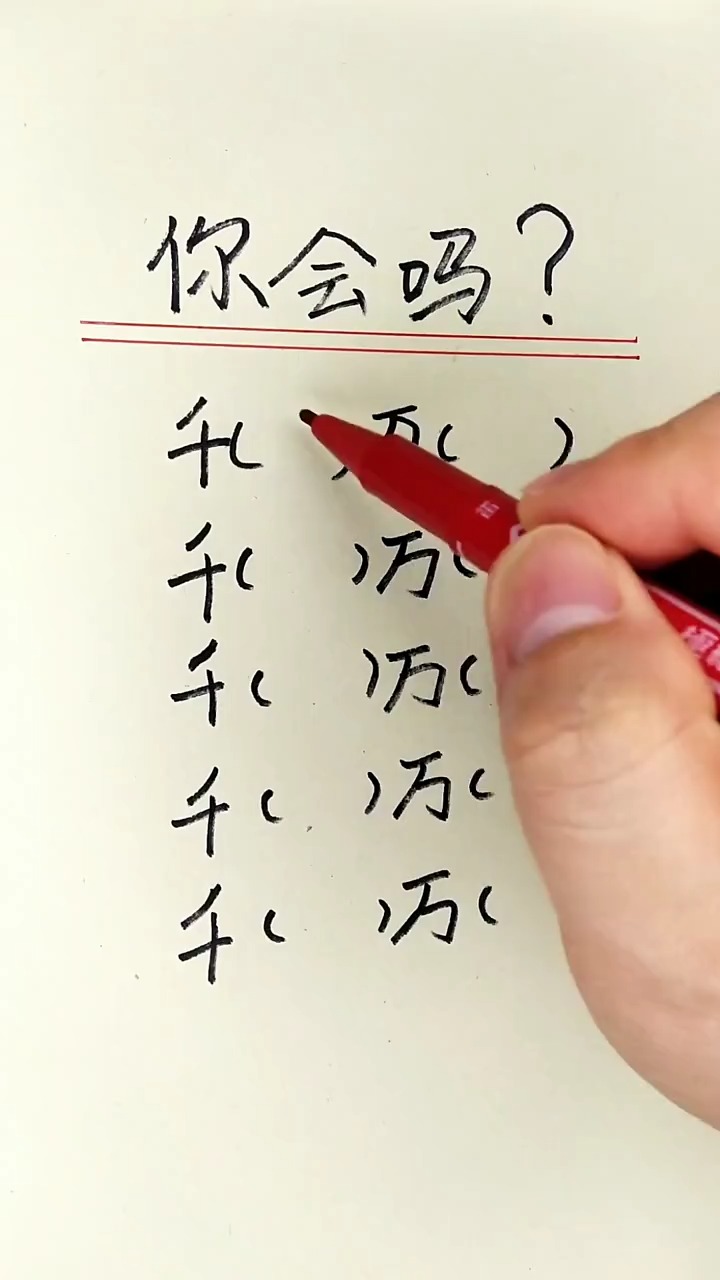 你会吗?
千( )万( )
千( )万(
千( )万(
千( )万(
千( )万(